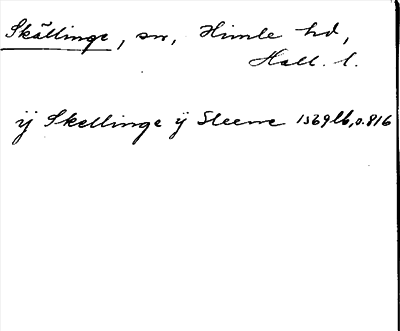 Skällinge, sn, Himle hd,
Hall. l.
ij Skellinge ij Sleeue 1569 lb, o. 816